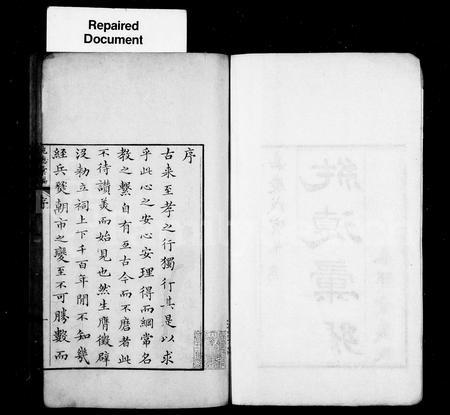 Repaired
Document
序
古來至孝之行獨行其是以求
乎此心之安心安理得而綱常名
教之繫自有亙古今而不磨者此
不待讃美而始見也然生膺徵辟
沒勅立祠上下千百年間不知幾
經兵燹朝市之變至不可勝數而
序
一
純德彙編